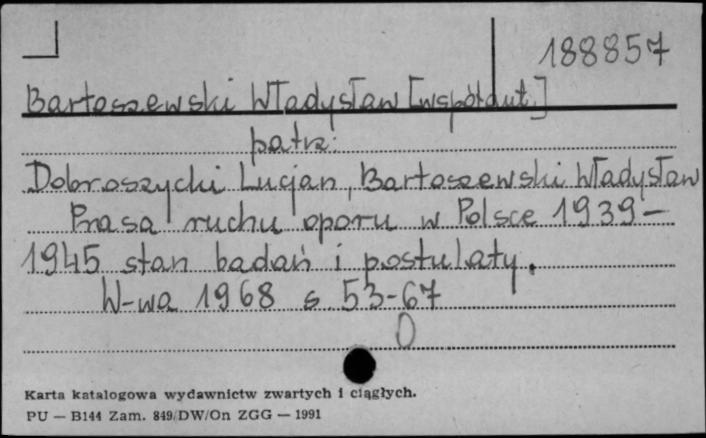 188857
Bartoszewski Władysław [współaut.]
patrz:
Dobroszycki Lucjan, Bartoszewski Władysław
Prasa ruchu oporu w Polsce 1939-
1945 stan badań i postulaty.
W-wa 1968 s. 53-67
0
Karta katalogowa wydawnictw zwartych i ciągłych.
PU — B144 Zam. 849/DW/On ZGG — 1991